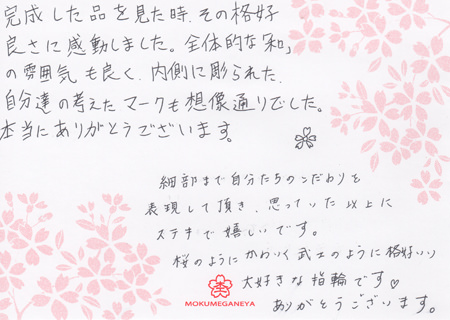 完成した品を見た時、その格好
良さに感動しました。全体的な「和」
の雰囲気も良く、内側に彫られた、
自分達の考えたマークも想像通りでした。
本当にありがとうございます。
細部まで自分たちのこだわりを
表現して頂き、思っていた以上に
ステキで嬉しいです。
桜のようにかわいく武士のように格好いい
大好きな指輪です♡
ありがとうございます。
MOKUMEGANEYA